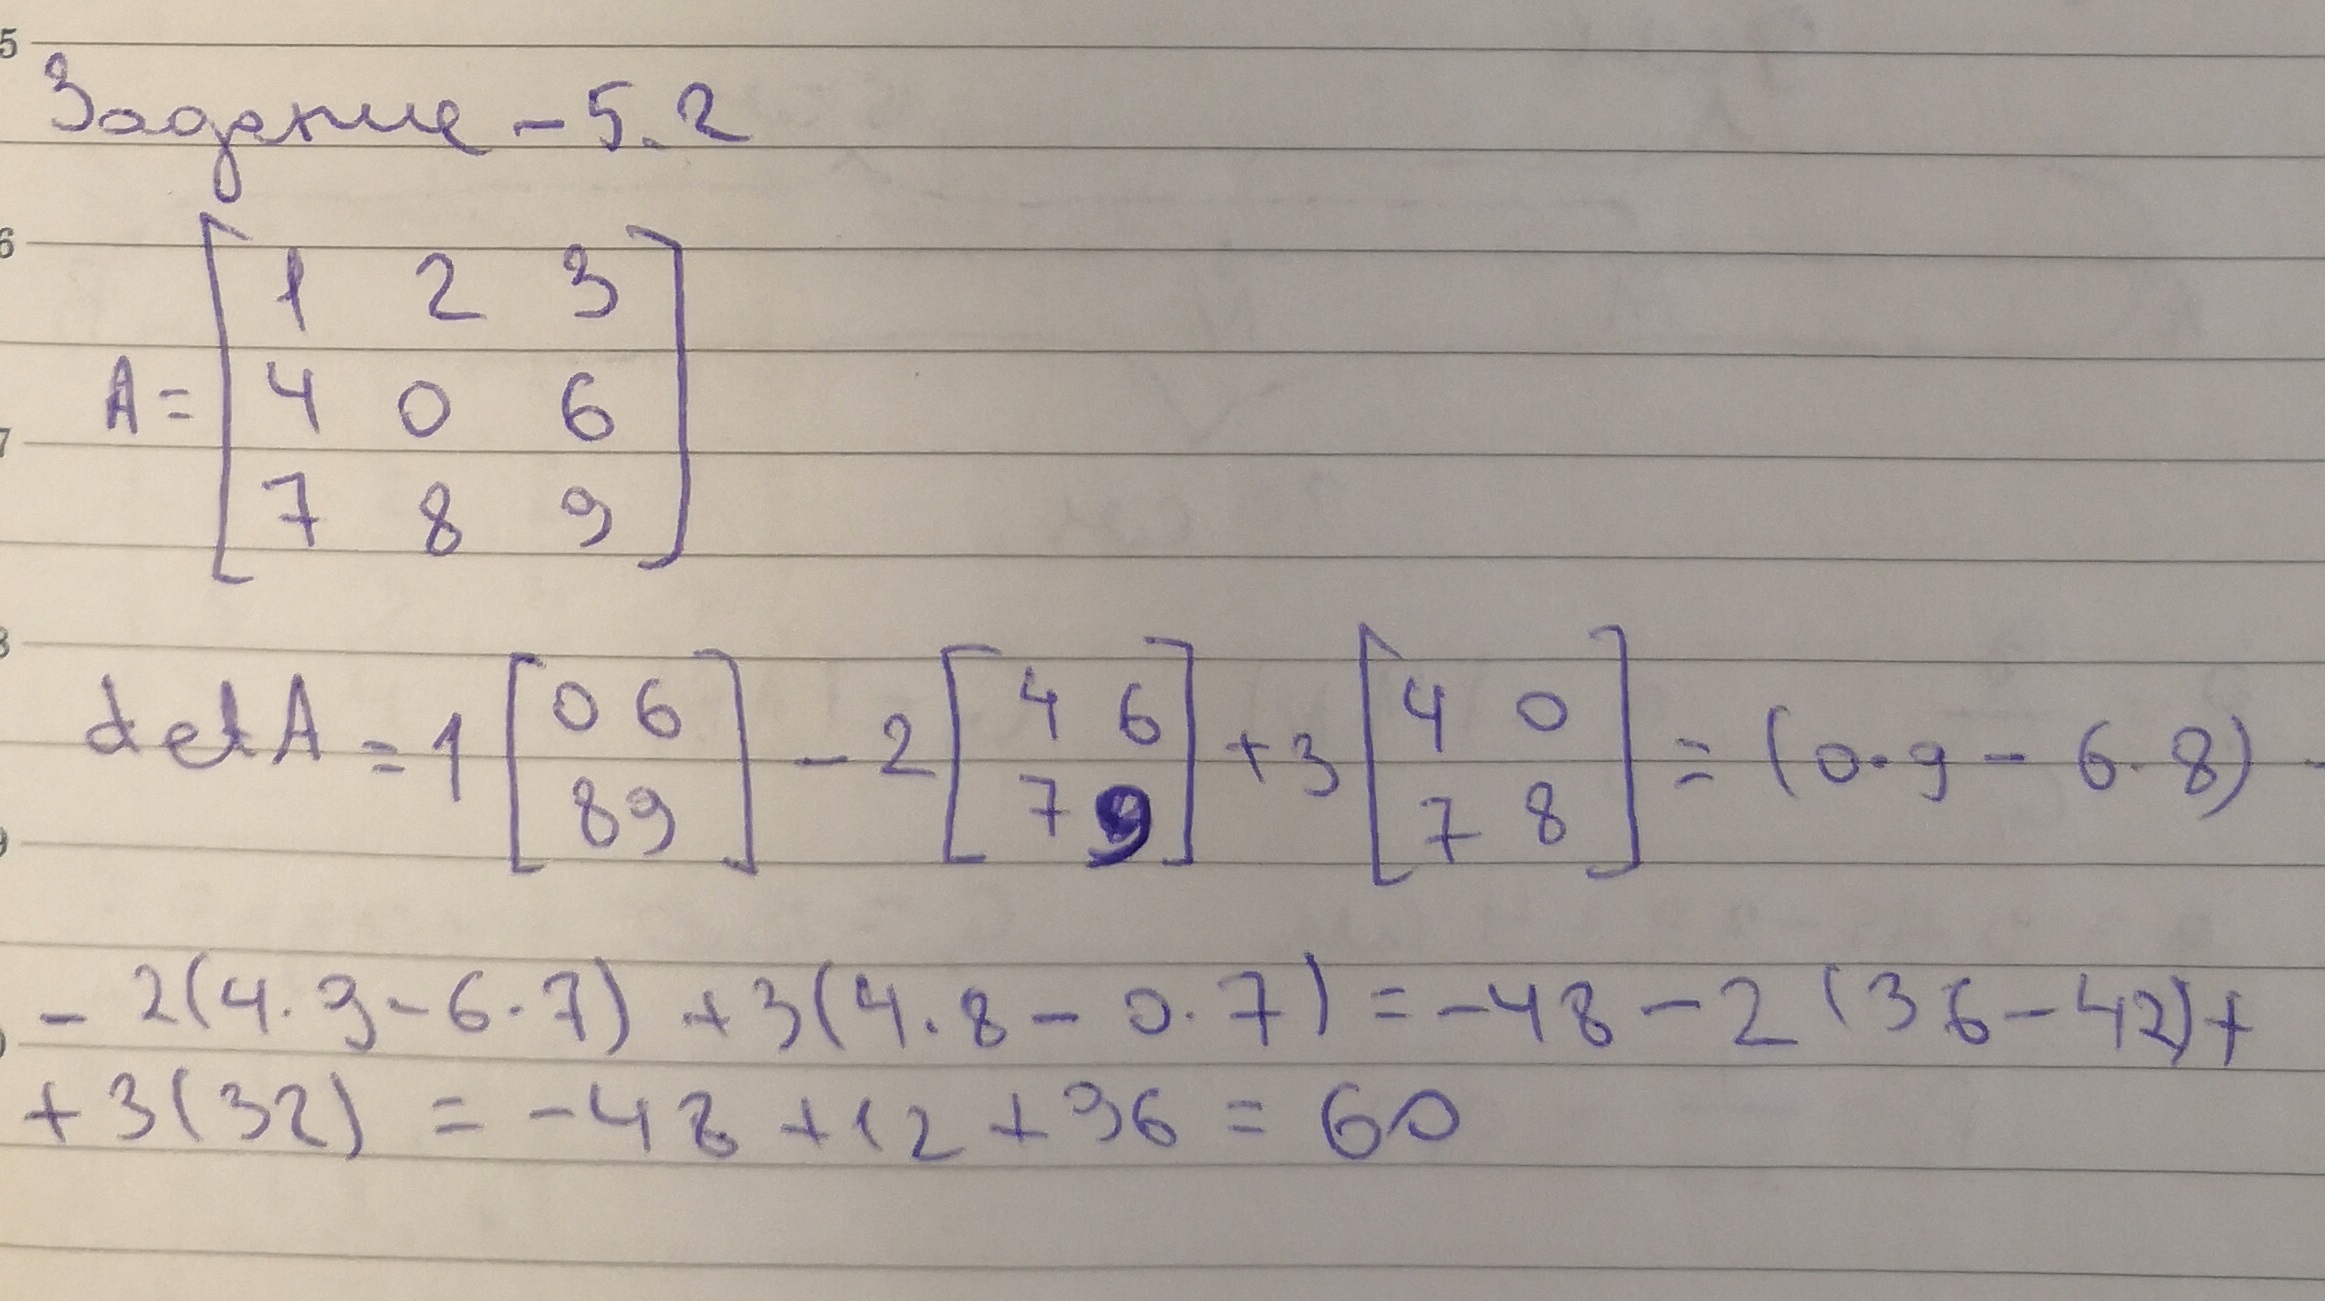 Задание - 5.2
1 2 3
A = 4 0 6
7 8 9
det A = 1 [0 6 8 9] - 2 [4 6 7 9] + 3 [4 0 7 8] = (0·9 - 6·8) -
- 2(4·9 - 6·7) + 3(4·8 - 0·7) = -48 - 2(36 - 42) +
+ 3(32) = -48 + 12 + 96 = 60